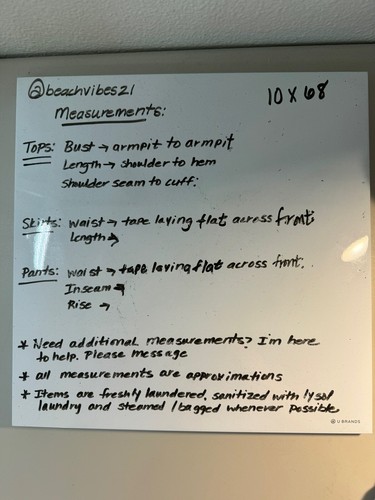 @beachvibes21
10 X 68
Measurements:
Tops: Bust → armpit to armpit
Length → shoulder to hem
Shoulder seam to cuff:
Skirts: waist → tape laying flat across front
Length →
Pants: waist → tape laying flat across front.
Inseam →
Rise →
* Need additional measurements? I'm here
to help. Please message
* all measurements are approximations
* Items are freshly laundered, sanitized with lysol
laundry and steamed / bagged whenever possible
U BRANDS